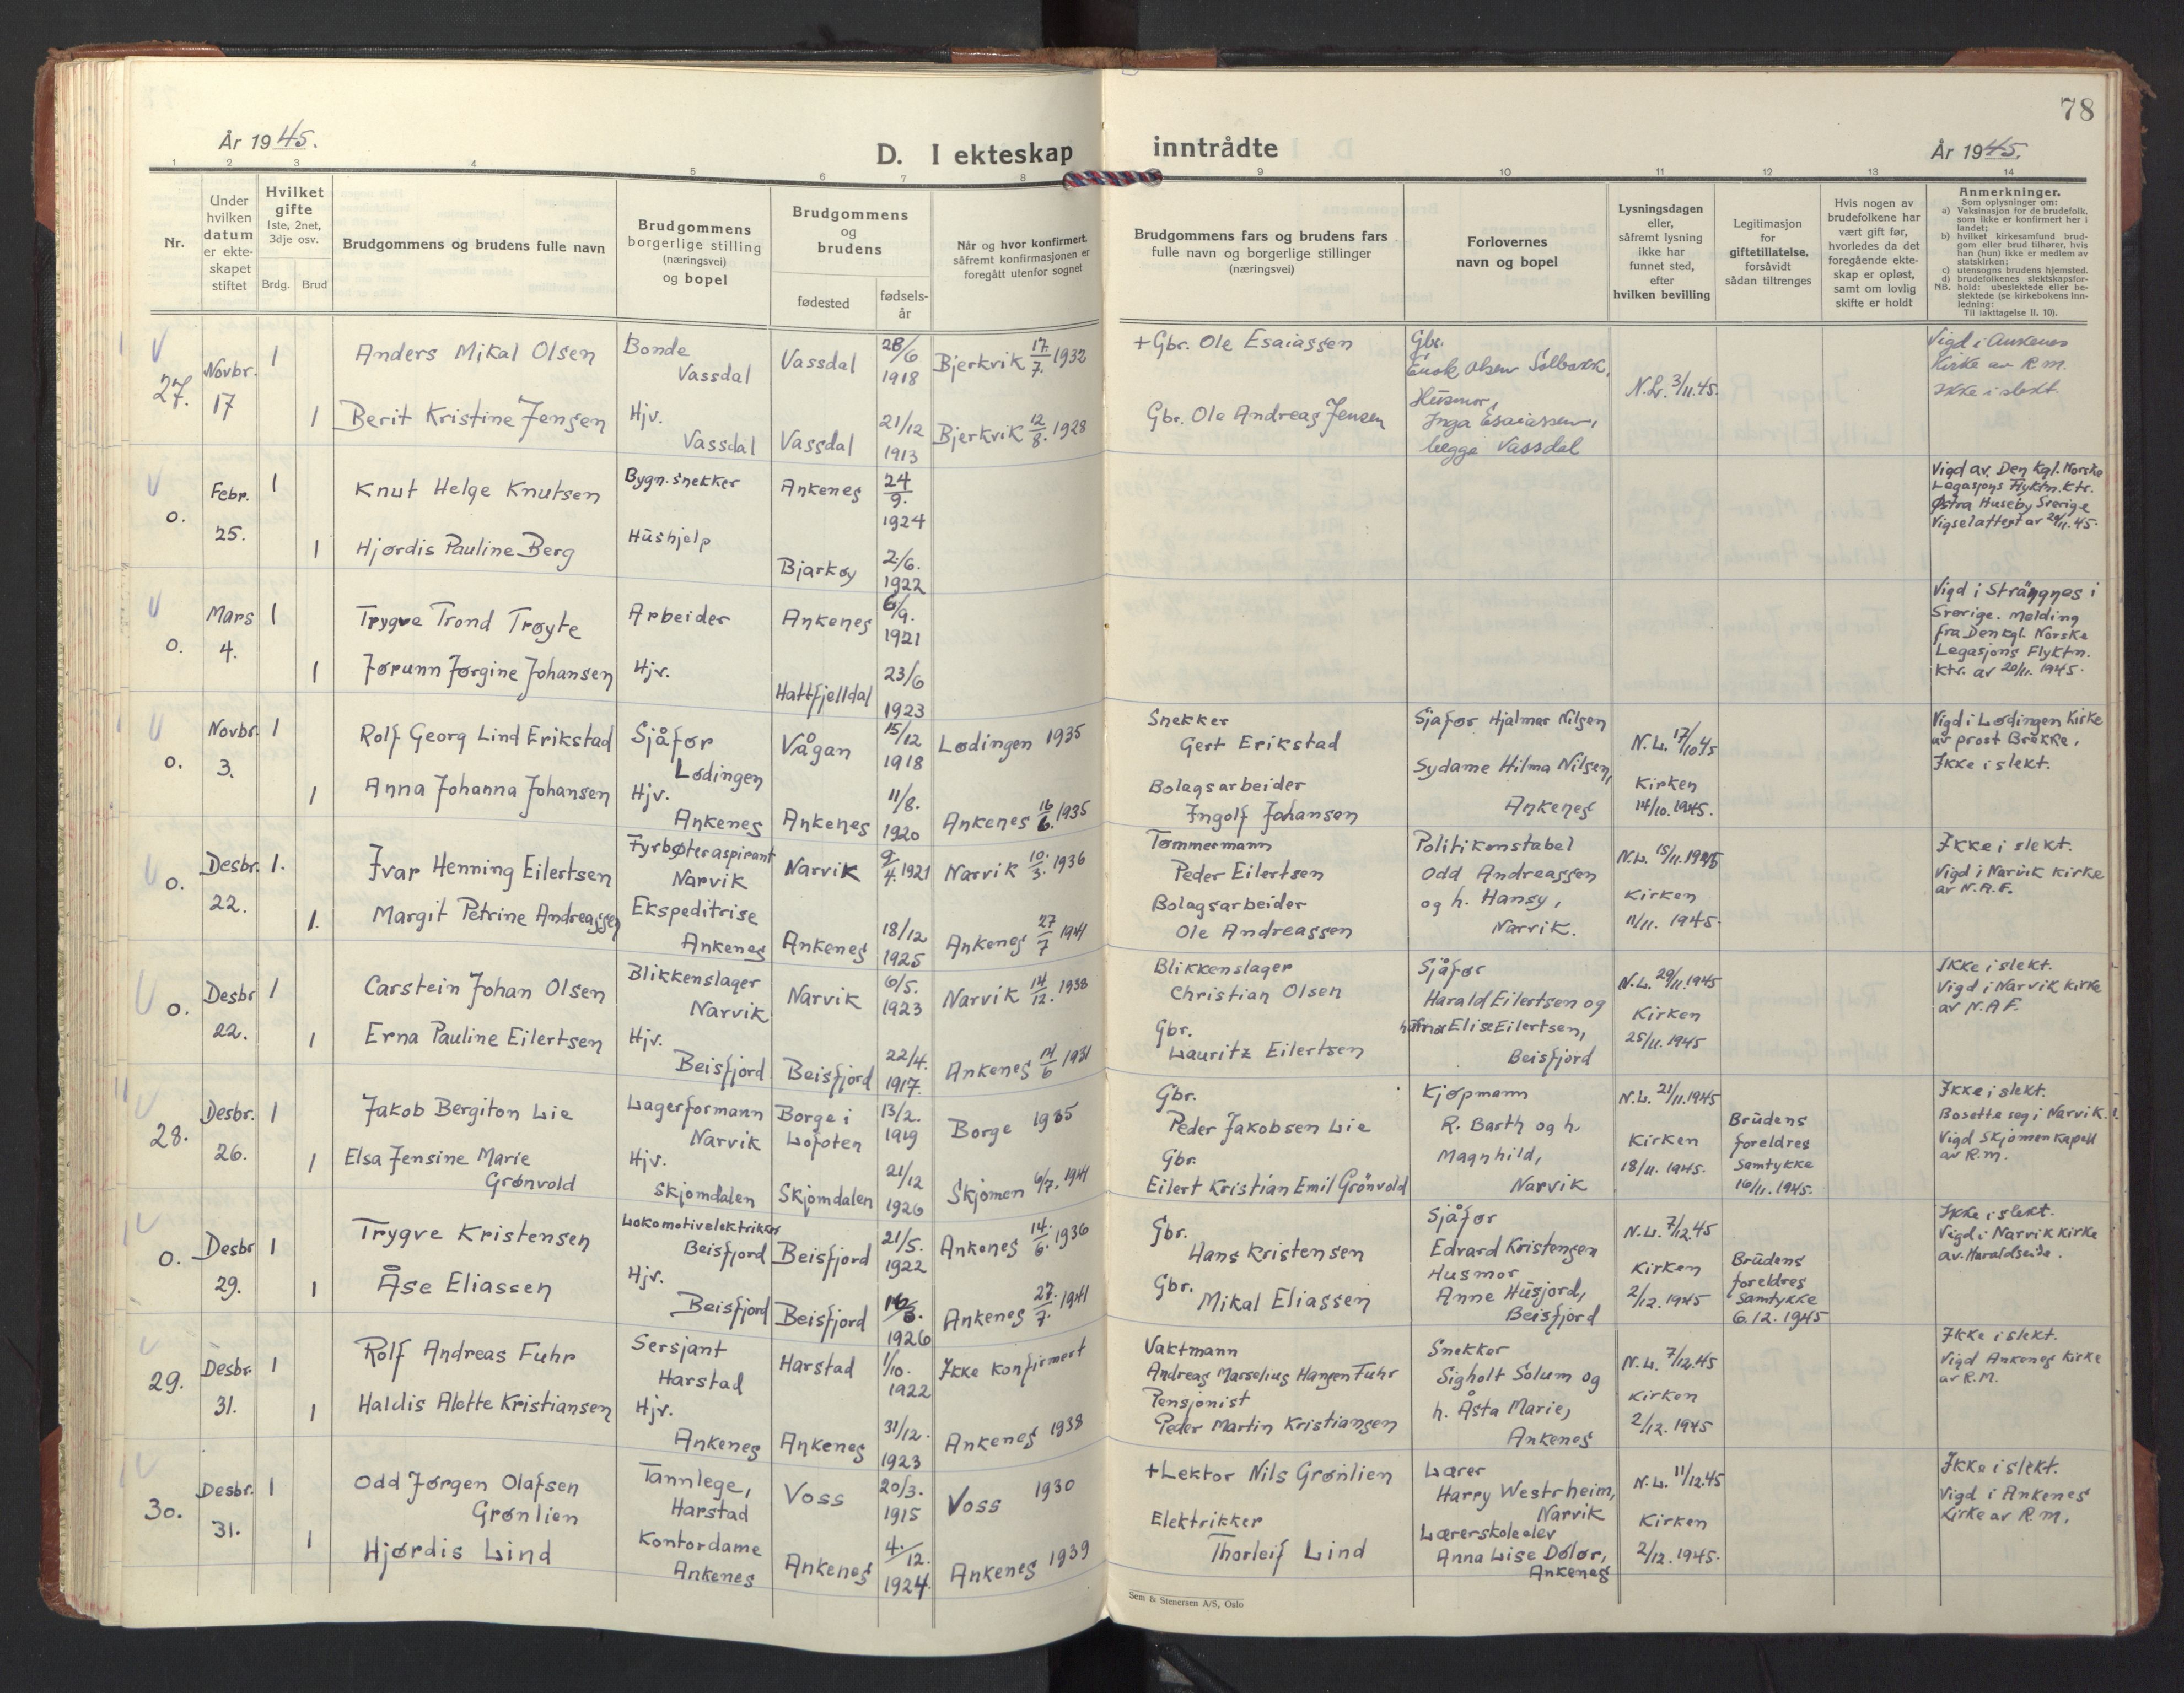 78
År 1945.
D. I ekteskap inntrådte
År 1945.
1 2 3 4 5 6 7 8 9 10 11 12 13 14
Nr.
Under hvilken datum er ekteskapet stiftet
Hvilket gifte
1ste, 2net, 3dje osv.
Brdg. Brud
Brudgommens og brudens fulle navn
Brudgommens borgerlige stilling (næringsvei) og bopel
Brudgommens og brudens
fødested
fødselsår
Når og hvor konfirmert, såfremt konfirmasjonen er foregått utenfor sognet
Brudgommens fars og brudens fars fulle navn og borgerlige stillinger (næringsvei)
Forlovernes navn og bopel
Lysningsdagen eller, såfremt lysning ikke har funnet sted, efter hvilken bevilling
Legitimasjon for giftetillatelse, forsåvidt sådan tiltrenges
Hvis nogen av brudefolkene har vært gift før, hvorledes da det foregående ekteskap er opløst, samt om lovlig skifte er holdt
Anmerkninger.
Som oplysninger om:
a) Vaksinasjon for de brudefolk, som ikke er konfirmert her i landet;
b) hvilket kirkesamfund brudgom eller brud tilhører, hvis han (hun) ikke er medlem av statskirken;
c) utensogns brudens hjemsted.
d) brudefolkenes slektskapsforhold: ubeslektede eller beslektede (se kirkebokens innledning:
NB.
Til iakttagelse II. 10).
27. Novbr. 17 1 Anders Mikal Olsen Bonde Vassdal Vassdal 28/6 1918 Bjerkvik 17/7. 1932 + Gbr. Ole Esaiassen
1 Berit Kristine Jensen Hjv. Vassdal Vassdal 21/12 1913 Bjerkvik 12/8. 1928 Gbr. Ole Andreas Jensen
Gbr. Enok Olsen Solbakk, Husmor, Inga Esaiassen, begge Vassdal
N.L. 3/11.45.
Vigd i Ankenes Kirke av R.M. Ikke i slekt.
0. Febr. 25. 1 Knut Helge Knutsen Bygn.snekker Ankenes 24/9. 1924
1 Hjørdis Pauline Berg Hushjelp Bjarkøy 2/6. 1922
Vigd av. Den kgl. Norske Legasjons Flyktn. Ktr. Östra Huseby Sverige Vigselattest av 24/11.45.
0. Mars 4. 1 Trygve Trond Trøyte Arbeider Ankenes 6/9. 1921
1 Jorunn Jørgine Johansen Hjv. Hattfjelldal 23/6 1923
Vigd i Strängnes i Sverige. Melding fra Den kgl. Norske Legasjons Flyktn. Ktr. av 20/11. 1945.
0. Novbr. 3. 1 Rolf Georg Lind Erikstad Sjåfør Lødingen Vågan 15/12 1918 Lødingen 1935 Snekker Gert Erikstad
1 Anna Johanna Johansen Hjv. Ankenes Ankenes 11/8. 1920 Ankenes 16/6. 1935 Bolagsarbeider Ingolf Johansen
Sjåfør Hjalmar Nilsen Sydame Hilma Nilsen, Ankenes
N.L. 17/10 45 Kirken 14/10. 1945.
Vigd i Lødingen Kirke av prost Brække. Ikke i slekt.
0. Desbr. 22. 1. Ivar Henning Eilertsen Fyrbøteraspirant Narvik Narvik 9/4. 1921 Narvik 10./3. 1936 Tømmermann Peder Eilertsen
1. Margit Petrine Andreassen Ekspeditrise Ankenes Ankenes 18/12 1925 Ankenes 27/7 1941 Bolagsarbeider Ole Andreassen
Politikonstabel Odd Andreassen og h. Hansy, Narvik.
N.L. 15/11. 1945 Kirken 11/11. 1945.
Ikke i slekt. Vigd i Narvik kirke av N.A.F.
0. Desbr 22. 1 Carstein Johan Olsen Blikkenslager Narvik Narvik 6/5. 1923 Narvik 14/12. 1938 Blikkenslager Christian Olsen
1 Erna Pauline Eilertsen Hjv. Beisfjord Beisfjord 22/4. 1917. Ankenes 14/6 1931 Gbr. Lauritz Eilertsen
Sjåfør Harald Eilertsen og Elise Eilertsen, Beisfjord
N.L. 29/11.1945 Kirken 25/11. 1945
Ikke i slekt. Vigd i Narvik Kirke av N.A.F.
28. Desbr. 26. 1 Jakob Bergiton Lie Lagerformann Narvik Borge i Lofoten 13/2. 1919 Borge 1935 Gbr. Peder Jakobsen Lie
1 Elsa Jensine Marie Grønvold Hjv. Skjomdalen Skjomdalen 21/12 1926 Skjomen 6/7. 1941 Gbr. Eilert Kristian Emil Grönvold
Kjøpmann R. Barth og h. Magnhild, Narvik
N.L. 21/11.1945 Kirken 18/11. 1945.
Brudens foreldres samtykke 16/11. 1945.
Ikke i slekt. Bosette seg i Narvik. Vigd Skjomen Kapell av R.M.
0. Desbr 29. 1 Trygve Kristensen Lokomotivelektriker Beisfjord Beisfjord 21/5. 1922 Ankenes 14./6. 1936 Gbr. Hans Kristensen
1 Åse Eliassen Hjv. Beisfjord Beisfjord 1926 Ankenes 27./7. 1941 Gbr. Mikal Eliassen
Sjåfør Edvard Kristensen Husmor Anne Husjord, Beisfjord
N.L. 7/12.45 Kirken 2/12. 1945
Brudens foreldres samtykke 6.12. 1945
Ikke i slekt. Vigd i Narvik kirke av. Haraldseide.
29. Desbr. 31. 1 Rolf Andreas Fuhr Sersjant Harstad Harstad 1/10. 1922 Ikke konfirmert Vaktmann Andreas Marselius Hansen Fuhr
1 Haldis Alette Kristiansen Hjv. Ankenes Ankenes 31/12. 1923 Ankenes 1938 Pensjonist Peder Martin Kristiansen
Snekker Sigholt Solum og h. Åsta Marie, Ankenes
N.L. 7/12.45 Kirken 2/12. 1945
Ikke i slekt. Vigd Ankenes Kirke av R.M.
30. Desbr. 31. 1 Odd Jørgen Olafsen Grønlien Tannlege, Harstad Voss 20/3. 1915 Voss 1930 + Lektor Nils Grønlien
1 Hjørdis Lind Kontordame Ankenes Ankenes 4./12. 1924. Ankenes 1939 Elektrikker Thorleif Lind
Lærer Harry Westrheim, Narvik Lærerskoleelev Anna Lise Dolor, Ankenes
N.L. 11/12.45 Kirken 2/12. 1945.
Ikke i slekt. Vigd i Ankenes Kirke av R.M.
Sem & Stenersen A/S, Oslo